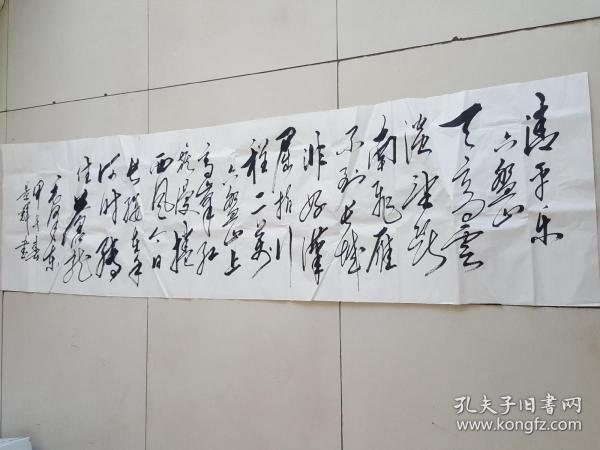 清平乐
六盘山
天高雲
淡望断
南飛雁
不到长城
非好漢
屈指行
程二万
六盤山上
高峯红
旗漫捲
西風今日
长缨在手
何时缚
住蒼龙
毛泽东
甲 春
书
孔夫子旧书网
www.kongfz.com